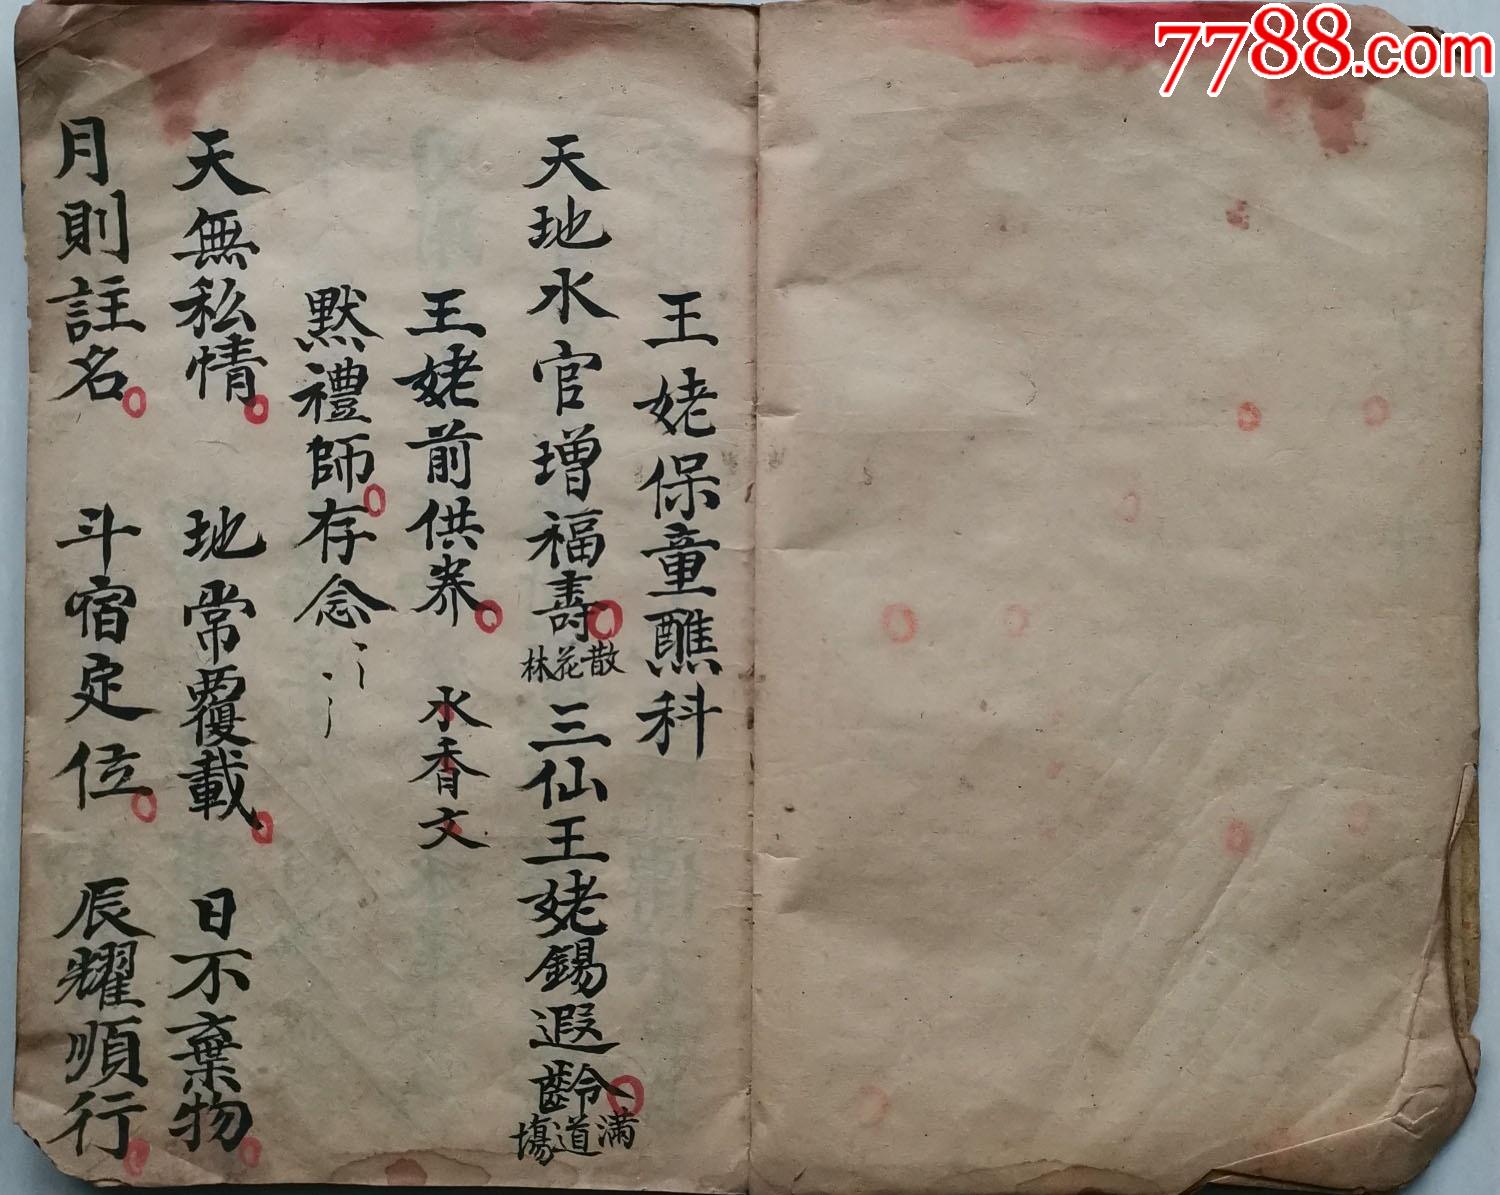 7788.com
王姥保童醮科
天地水官增福壽散花林三仙王姥錫遐齡滿道塲
王姥前供养 水香文
默禮師存念
天無私情 地常覆載 日不棄物
月則註名 斗宿定位 辰耀順行